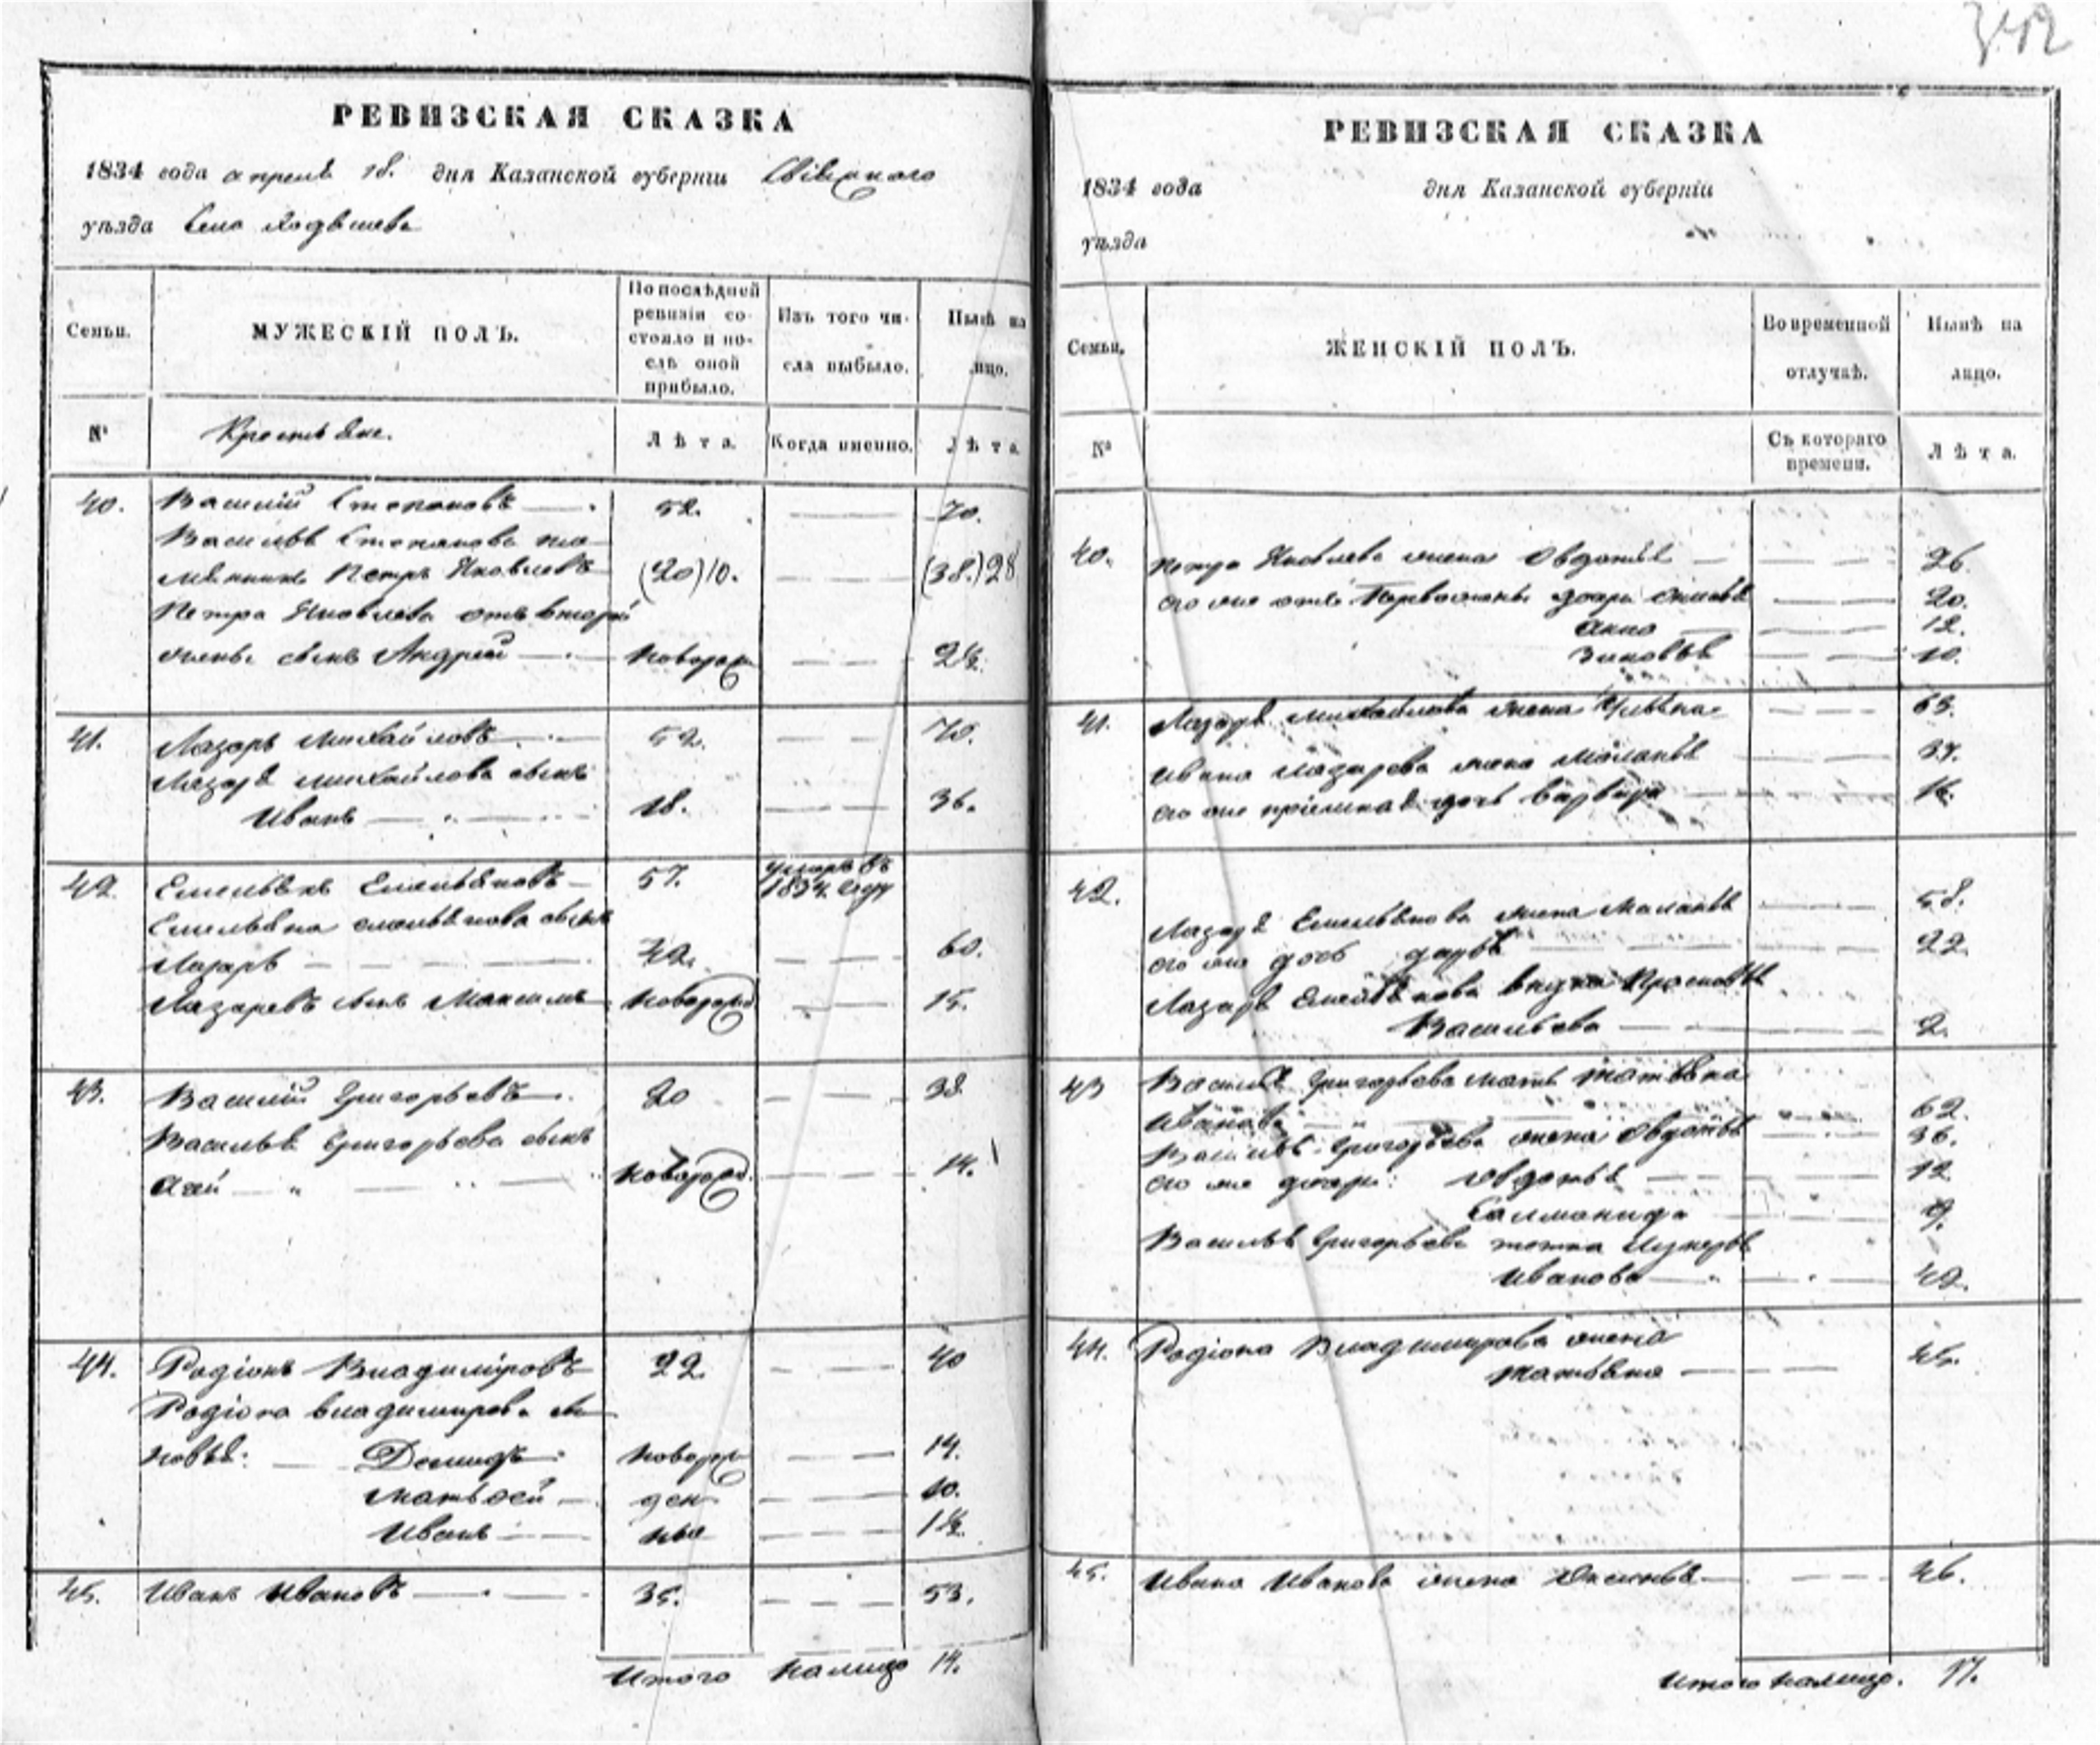 342
РЕВИЗСКАЯ СКАЗКА
1834 года апреля 18. дня Казанской губерніи
уѣзда Село
Семьи.
МУЖЕСКІЙ ПОЛЪ.
По послѣдней
ревизіи со-
стояло и по-
слѣ оной
прибыло.
Изъ того чи-
сла выбыло.
Нынѣ на
лицо.
№
Крестьяне.
Лѣта.
Когда именно.
Лѣта.
40. Василий Степановъ 52. 70.
Василья Степанова пле-
мянникъ Петръ Яковлевъ (20)10. (38.)28
Петра Яковлева отъ второй
жены сынъ Андрей новорож 2½.
41. Лазарь Михайловъ 52. 70.
Лазаря Михайлова сынъ
Иванъ 18. 36.
42. Емельянъ Емельяновъ 57. умеръ въ 1834. году
Емельяна Емельянова сынъ
Лазарь 42. 60.
Лазаревъ сынъ Максимъ новорожд 15.
43. Василий Григорьевъ 20 38
Василья Григорьева сынъ
новорожд. 14.
44. Родіонъ Владиміровъ 22. 40
Родіона Владимирова сы-
новья: Демидъ новорож 14.
Матвей ден 10.
Иванъ ные 1½.
45. Иванъ Ивановъ 35. 53.
Итого налицо 14.
РЕВИЗСКАЯ СКАЗКА
1834 года дня Казанской губерніи
уѣзда
Семьи.
ЖЕНСКІЙ ПОЛЪ.
Во временной
отлучкѣ.
Нынѣ на
лицо.
№
Съ котораго
времени.
Лѣта.
40. Петра Яковлева жена Овдотья 26.
его же отъ Первой жены дочери 20.
Анна 12.
Зиновья 10.
41. Лазаря Михайлова жена Ульяна 65.
Ивана Лазарева жена Маланья 37.
его же приемная дочь Варвара 16.
42. Лазаря Емельянова жена Маланья 58.
его же дочь Дарья 22.
Лазаря Емельянова внука Прасковья
Васильева 2.
43 Василья Григорьева мать Татьяна
Иванова 62.
Василья Григорьева жена Овдотья 36.
его же дочери: Овдотья 12
Саламанида 9.
Василья Григорьева тетка
Иванова 42.
44. Родіона Владимирова жена
Татьяна 45.
45. Ивана Иванова жена Аксинья 46.
Итого налицо. 17.